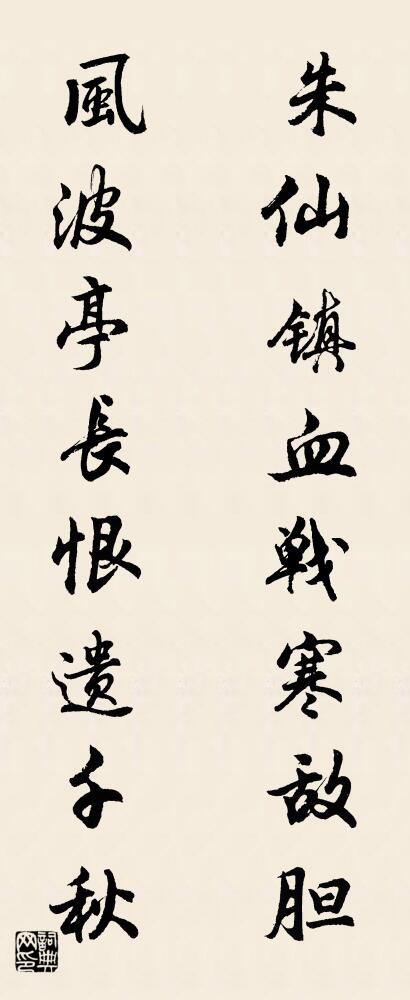 朱仙镇血戦寒敌胆
風波亭長恨遗千秋
詞典網印